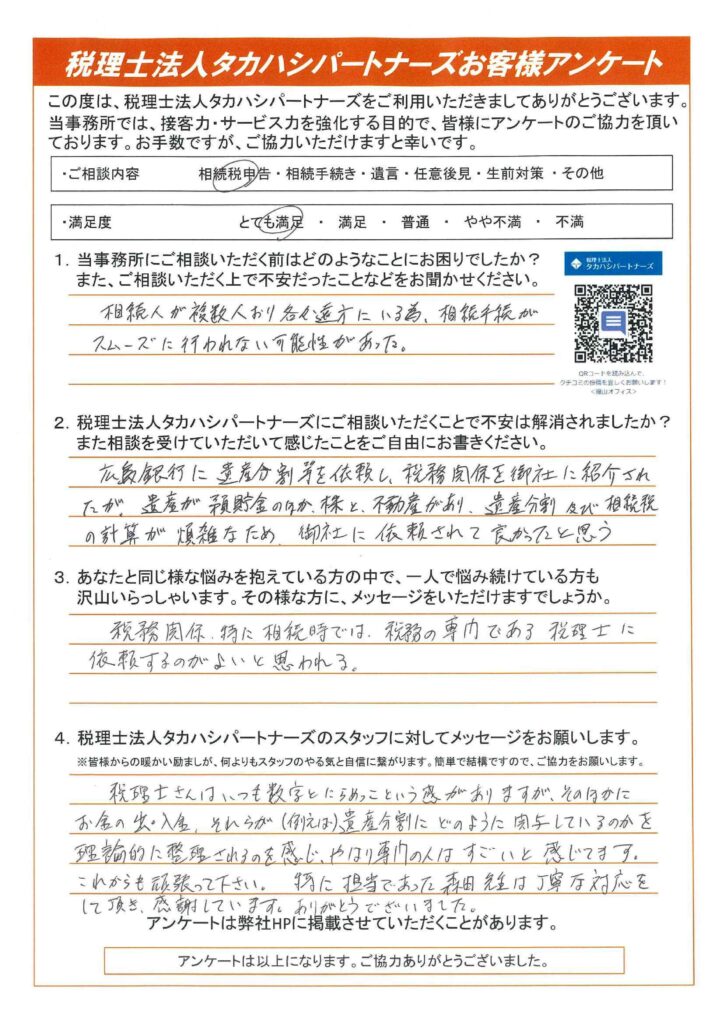 税理士法人タカハシパートナーズお客様アンケート
この度は、税理士法人タカハシパートナーズをご利用いただきましてありがとうございます。
当事務所では、接客力・サービス力を強化する目的で、皆様にアンケートのご協力を頂い
ております。お手数ですが、ご協力いただけますと幸いです。
・ご相談内容 相続税申告・相続手続き・遺言・任意後見・生前対策・その他
・満足度 とても満足 ・ 満足 ・ 普通 ・ やや不満 ・ 不満
1．当事務所にご相談いただく前はどのようなことにお困りでしたか？
また、ご相談いただく上で不安だったことなどをお聞かせください。
税理士法人
タカハシパートナーズ
相続人が複数人おり各々遠方にいる為、相続手続が
スムーズに行われない可能性があった。
QRコードを読み込んで、
クチコミの投稿を宜しくお願いします！
<福山オフィス>
2．税理士法人タカハシパートナーズにご相談いただくことで不安は解消されましたか？
また相談を受けていただいて感じたことをご自由にお書きください。
広島銀行に遺産分割等を依頼し、税務関係を御社に紹介され
たが、遺産が預貯金のほか、株と、不動産があり、遺産分割及び相続税
の計算が煩雑なため、御社に依頼されて良かったと思う
3．あなたと同じ様な悩みを抱えている方の中で、一人で悩み続けている方も
沢山いらっしゃいます。その様な方に、メッセージをいただけますでしょうか。
税務関係、特に相続時では、税務の専門である税理士に
依頼するのがよいと思われる。
4．税理士法人タカハシパートナーズのスタッフに対してメッセージをお願いします。
※皆様からの暖かい励ましが、何よりもスタッフのやる気と自信に繋がります。簡単で結構ですので、ご協力をお願いします。
税理士さんはいつも数字とにらめっこという感がありますが、そのほかに
お金の出・入金、それらが(例えば)遺産分割にどのように関与しているのかを
理論的に整理されるのを感じ、やはり専門の人はすごいと感じてます。
これからも頑張って下さい。特に担当であった森田先生は丁寧な対応を
して頂き、感謝しています。ありがとうございました。
アンケートは弊社HPに掲載させていただくことがあります。
アンケートは以上になります。ご協力ありがとうございました。